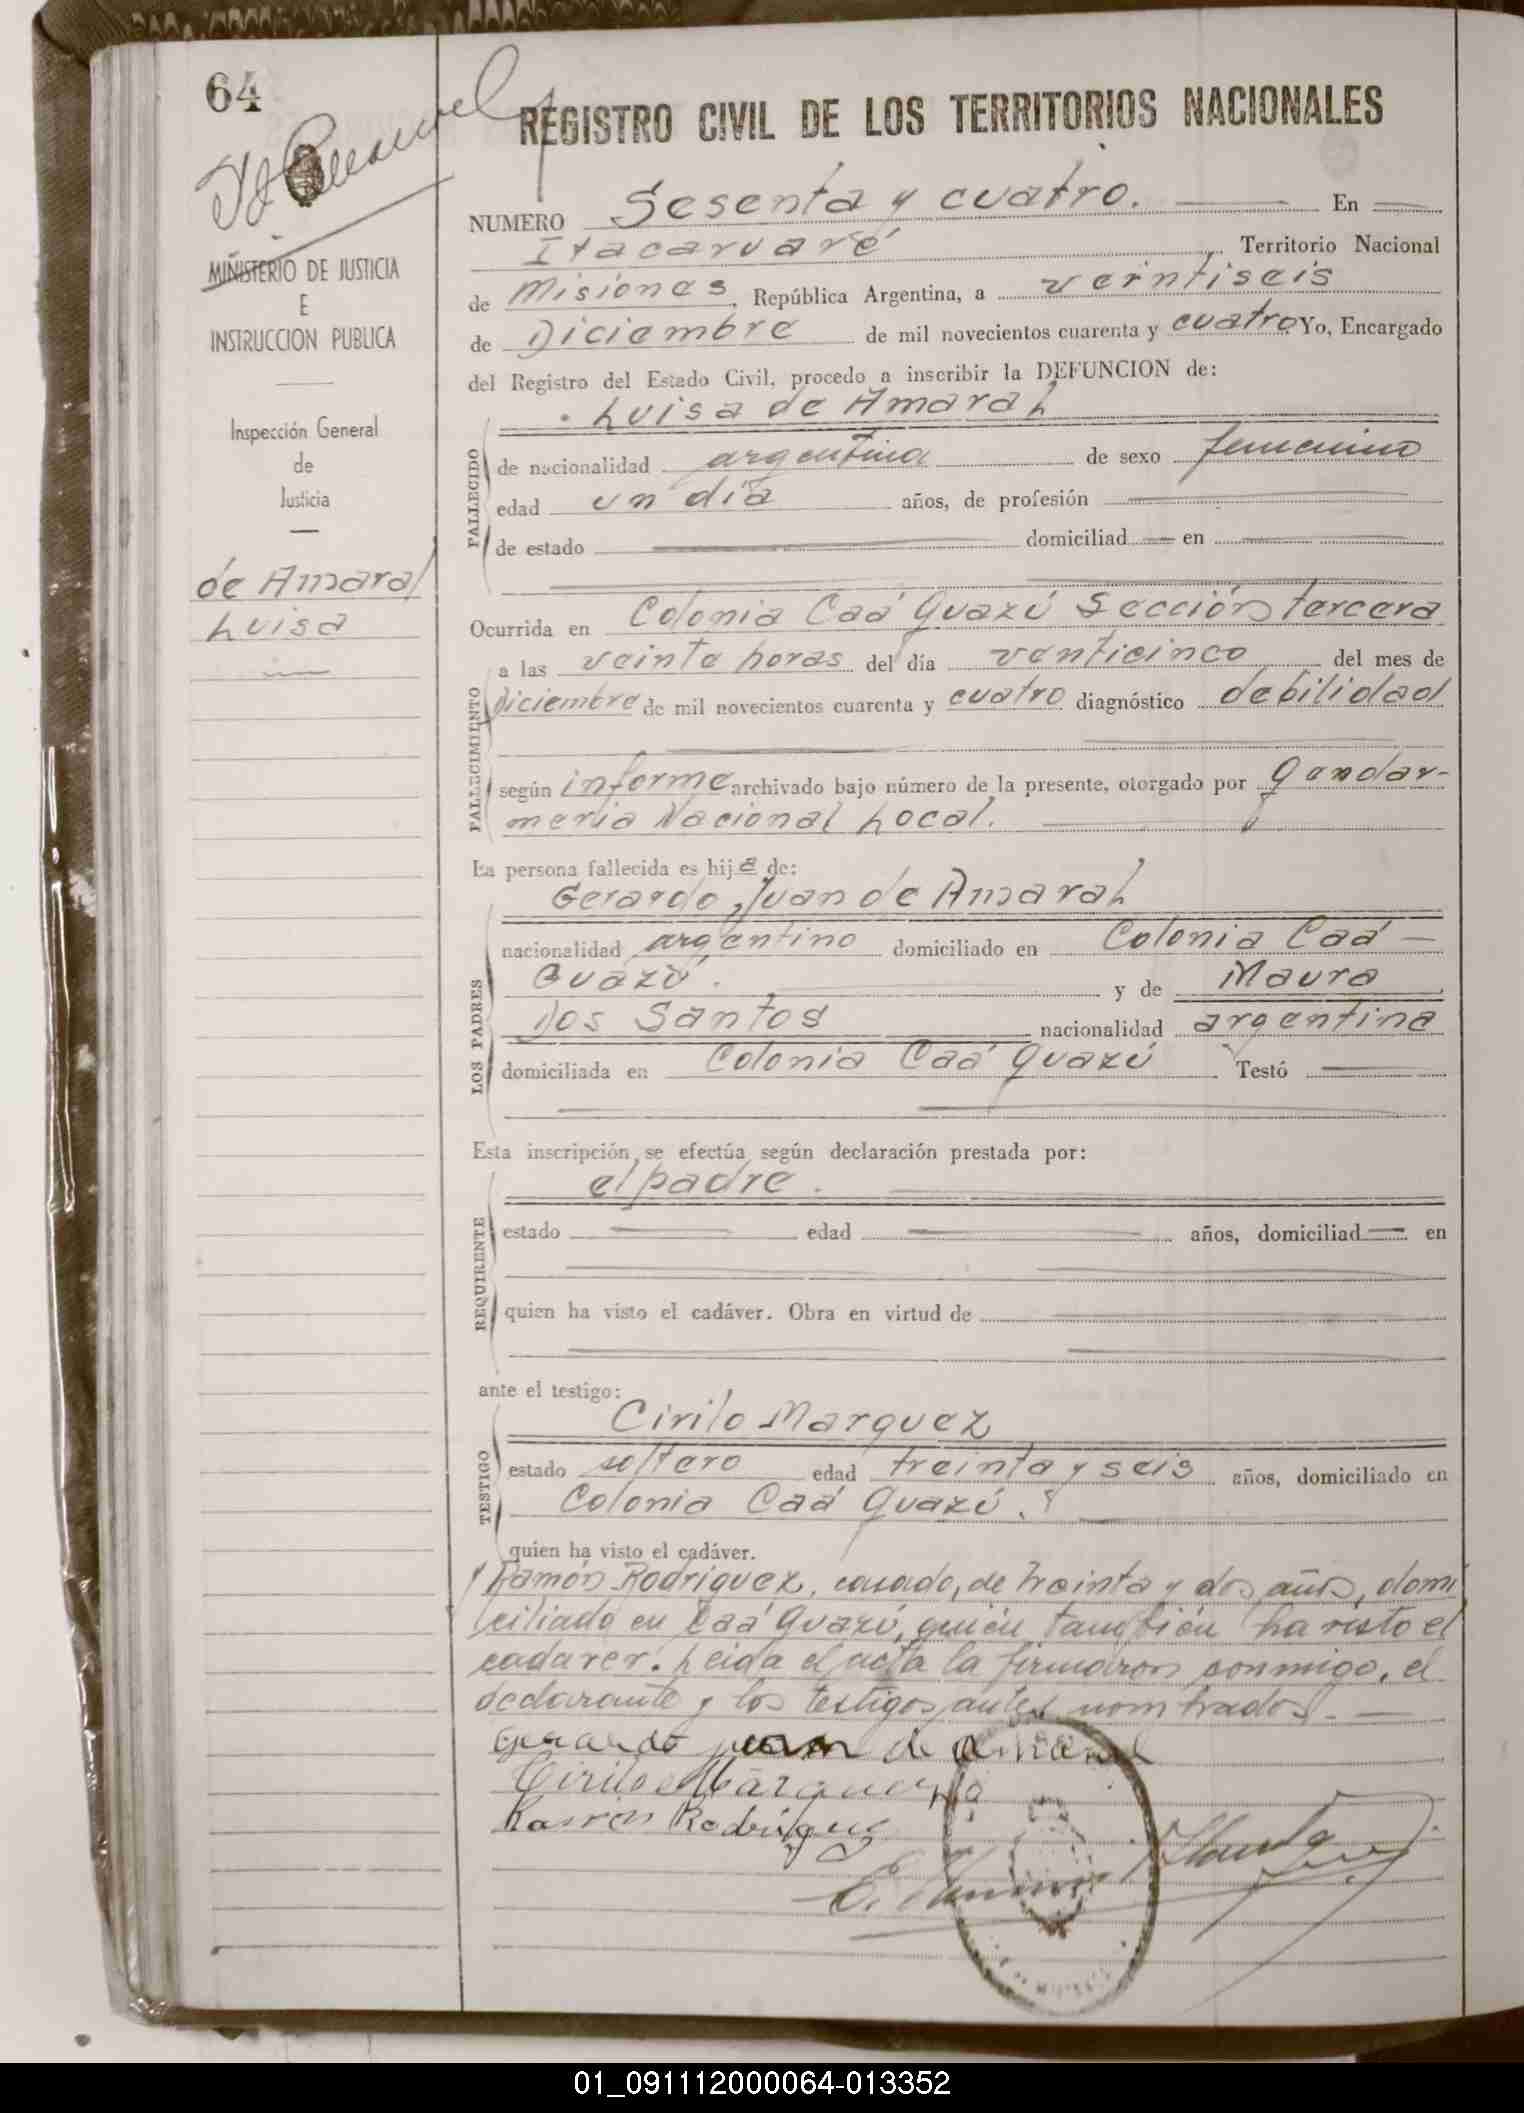 64
REGISTRO CIVIL DE LOS TERRITORIOS NACIONALES
MINISTERIO DE JUSTICIA
E
INSTRUCCION PUBLICA
Inspección General
de
Justicia
de Amaral
Luisa
NUMERO Sesenta y cuatro. En
Itacaruaré Territorio Nacional
de Misiones, República Argentina, a veintiseis
de Diciembre de mil novecientos cuarenta y cuatro Yo, Encargado
del Registro del Estado Civil, procedo a inscribir la DEFUNCION de:
Luisa de Amaral
FALLECIDO
de nacionalidad argentina de sexo femenino
edad un día años, de profesión
de estado domiciliad en
Ocurrida en Colonia Caá Guazú Sección tercera
FALLECIMIENTO
a las veinte horas del día venticinco del mes de
Diciembre de mil novecientos cuarenta y cuatro diagnóstico debilidad
según informe archivado bajo número de la presente, otorgado por Gendar-
meria Nacional Local.
La persona fallecida es hija de:
LOS PADRES
Gerardo Juan de Amaral
nacionalidad argentino domiciliado en Colonia Caá
Guazú. y de Maura
Dos Santos nacionalidad argentina
domiciliada en Colonia Caá Guazú Testó
Esta inscripción se efectúa según declaración prestada por:
REQUIRENTE
el padre.
estado edad años, domiciliad en
quien ha visto el cadáver. Obra en virtud de
ante el testigo:
TESTIGO
Cirilo Marquez
estado soltero edad treinta y seis años, domiciliado en
Colonia Caá Guazú. y
quien ha visto el cadáver.
Ramón Rodriguez, casado, de treinta y dos años, domi
ciliado en Caá Guazú, quién también ha visto el
cadaver. Leida el acta la firmaron conmigo, el
declarante y los testigos antes nombrados.
Gerardo juan de amaral
Cirilo Márquez
Ramón Rodríguez
01_091112000064-013352